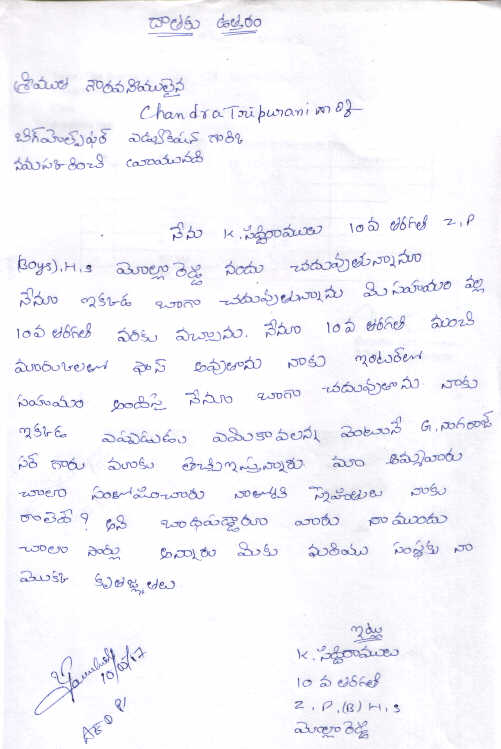 దాతకు ఉత్తరం
శ్రీయుత గౌరవనీయులైన
Chandra Tripurani గారికి
బిగ్‌హెల్ప్‌ఫర్ ఎడుకేషన్ గారికి
నమస్కరించి వ్రాయునది
నేను K. సన్నిరాములు 10వ తరగతి Z,P
(Boys),H,S మొల్లా రెడ్డి నందు చదువుతున్నాను
నేను ఇక్కడ బాగా చదువుతున్నాను మి సహాయం వల్ల
10వ తరగతి వరకు వచ్చాను. నేను 10వ తరగతి మంచి
మారుకులలో ఫాస్ అవుతాను నాకు ఇంటర్‌లో
సహయం అందిస్తే నేను బాగా చదువుతాను నాకు
ఇక్కడ ఎప్పుడు ఎమికావలన్న వెంటనే G. నాగరాజ్
సర్ గారు మాకు తెచ్చిఇస్తున్నారు మా అమ్మవారు
చాలా సంతోషించారు నాతోటి స్నేహితులు నాకు
రాలేదే? అని బాధపడ్డారు వారు నా ముందు
చాలా సార్లు అన్నారు మీకు మరియు సంస్థకు నా
మొక్క కృతజ్ఞతలు
ఇట్లు
K. సన్నిరాములు
10 వ తరగతి
Z,P,(B) H,S
మొల్లా రెడ్డి